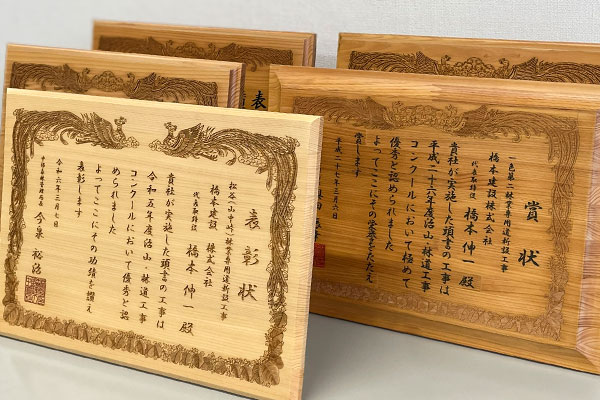 表彰状
松谷(山中峠)林業専用道新設工事
橋本建設 株式会社
代表取締役 橋本伸一 殿
貴社が実施した頭書の工事は
令和五年度治山・林道工事
コンクールにおいて優秀と認
められました
よってここにその功績を讃え
表彰します
令和六年三月七日
今泉 裕治
賞状
一色第二林業専用道新設工事
橋本建設株式会社
代表取締役 橋本伸一 殿
貴社が実施した頭書の工事は
平成二十六年度治山・林道工事
コンクールにおいて極めて
優秀と認められました
よってここにその栄誉をたたえ
賞します
平成二十七年三月六日
表